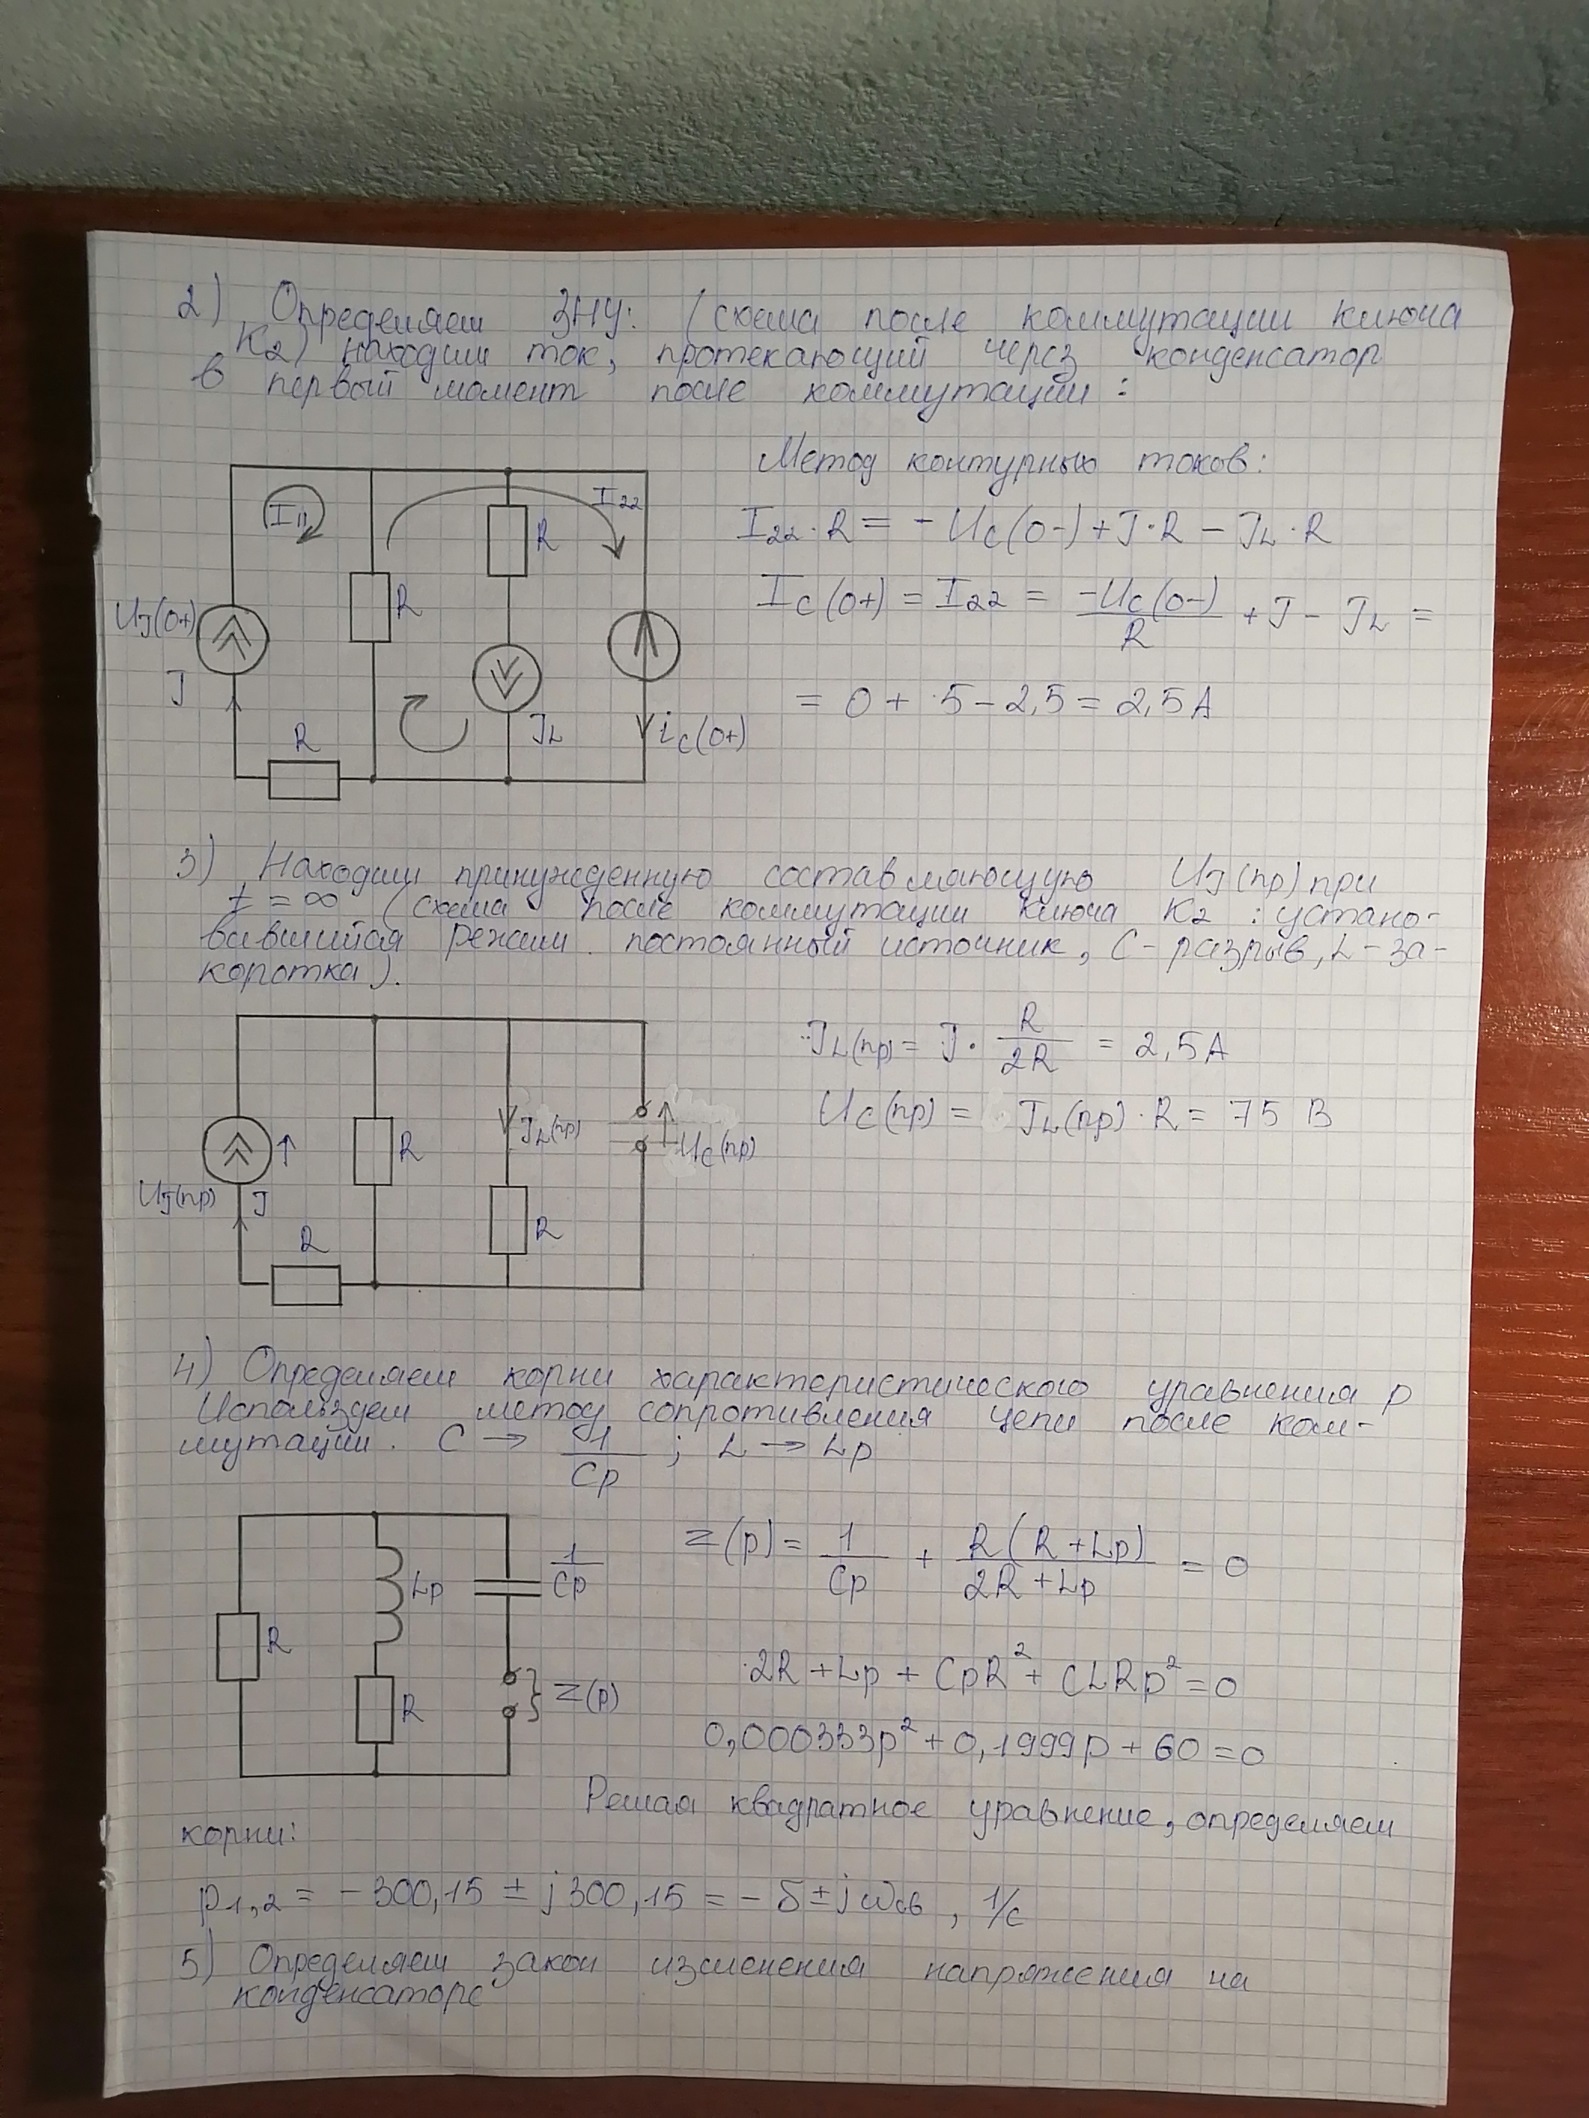 2) Определяем ЗНУ: (схема после коммутации ключа
К2) находим ток, протекающий через конденсатор
в первый момент после коммутации:
Метод контурных токов:
I₂₂·R = -Uc(0-)+J·R - JL·R
Ic(0+) = I₂₂ = -Uc(0-)/R + J - JL =
= 0 + 5 - 2,5 = 2,5 А
I₁₁
I₂₂
R
R
UJ(0+)
J
JL
ic(0+)
R
3) Находим принужденную составляющую UJ(пр) при
t = ∞ (схема после коммутации ключа К2: устано-
вившийся режим. постоянный источник, С-разрыв, L-за-
коротка).
JL(пр) = J · R/2R = 2,5 А
Uc(пр) = JL(пр) · R = 75 В
JL(пр)
R
Uc(пр)
UJ(пр)
J
R
R
4) Определяем корни характеристического уравнения p
Используем метод сопротивления цепи после ком-
мутации. C → 1/Cp ; L → Lp
Z(p) = 1/Cp + R(R+Lp)/2R+Lp = 0
Lp
1/Cp
R
R
Z(p)
2R + Lp + CpR² + CLRp² = 0
0,000333p² + 0,1999p + 60 = 0
Решая квадратное уравнение, определяем
корни:
p1,2 = -300,15 ± j300,15 = -δ ± jωсв, 1/с
5) Определяем закон изменения напряжения на
конденсаторе